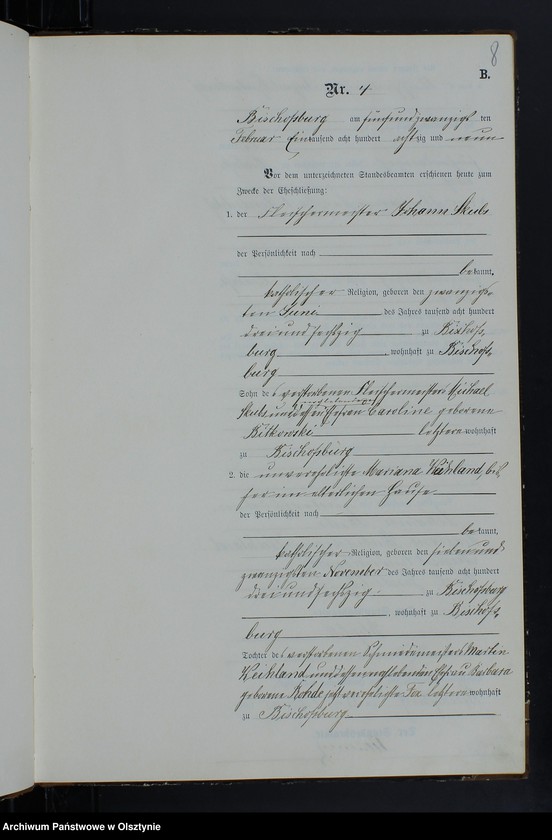 8
B.
Nr. 4
Bischofsburg am fünfundzwanzigsten
Februar Eintausend acht hundert achtzig und neun
Vor dem unterzeichneten Standesbeamten erschienen heute zum
Zwecke der Eheschließung:
1. der Fleischermeister Johann
der Persönlichkeit nach
bekannt,
katholischer Religion, geboren den zwanzigs-
ten Juni des Jahres tausend acht hundert
dreiundsechzig zu Bischofs-
burg, wohnhaft zu Bischofs-
burg
Sohn des verstorbenen Fleischermeisters Michael
und dessen Ehefrau Caroline geborene
letztere wohnhaft
zu Bischofsburg
2. die unverehelichte Mariana Kuhland, bis-
her im elterlichen Hause
der Persönlichkeit nach
bekannt,
katholischer Religion, geboren den siebenund-
zwanzigsten November des Jahres tausend acht hundert
dreiundsechzig zu Bischofsburg
, wohnhaft zu Bischofs-
burg
Tochter des verstorbenen Schmiedemeisters Martin
Kuhland und dessen Ehefrau Barbara
geborene Rohde jetzt verehelichte letztere wohnhaft
zu Bischofsburg
Archiwum Państwowe w Olsztynie